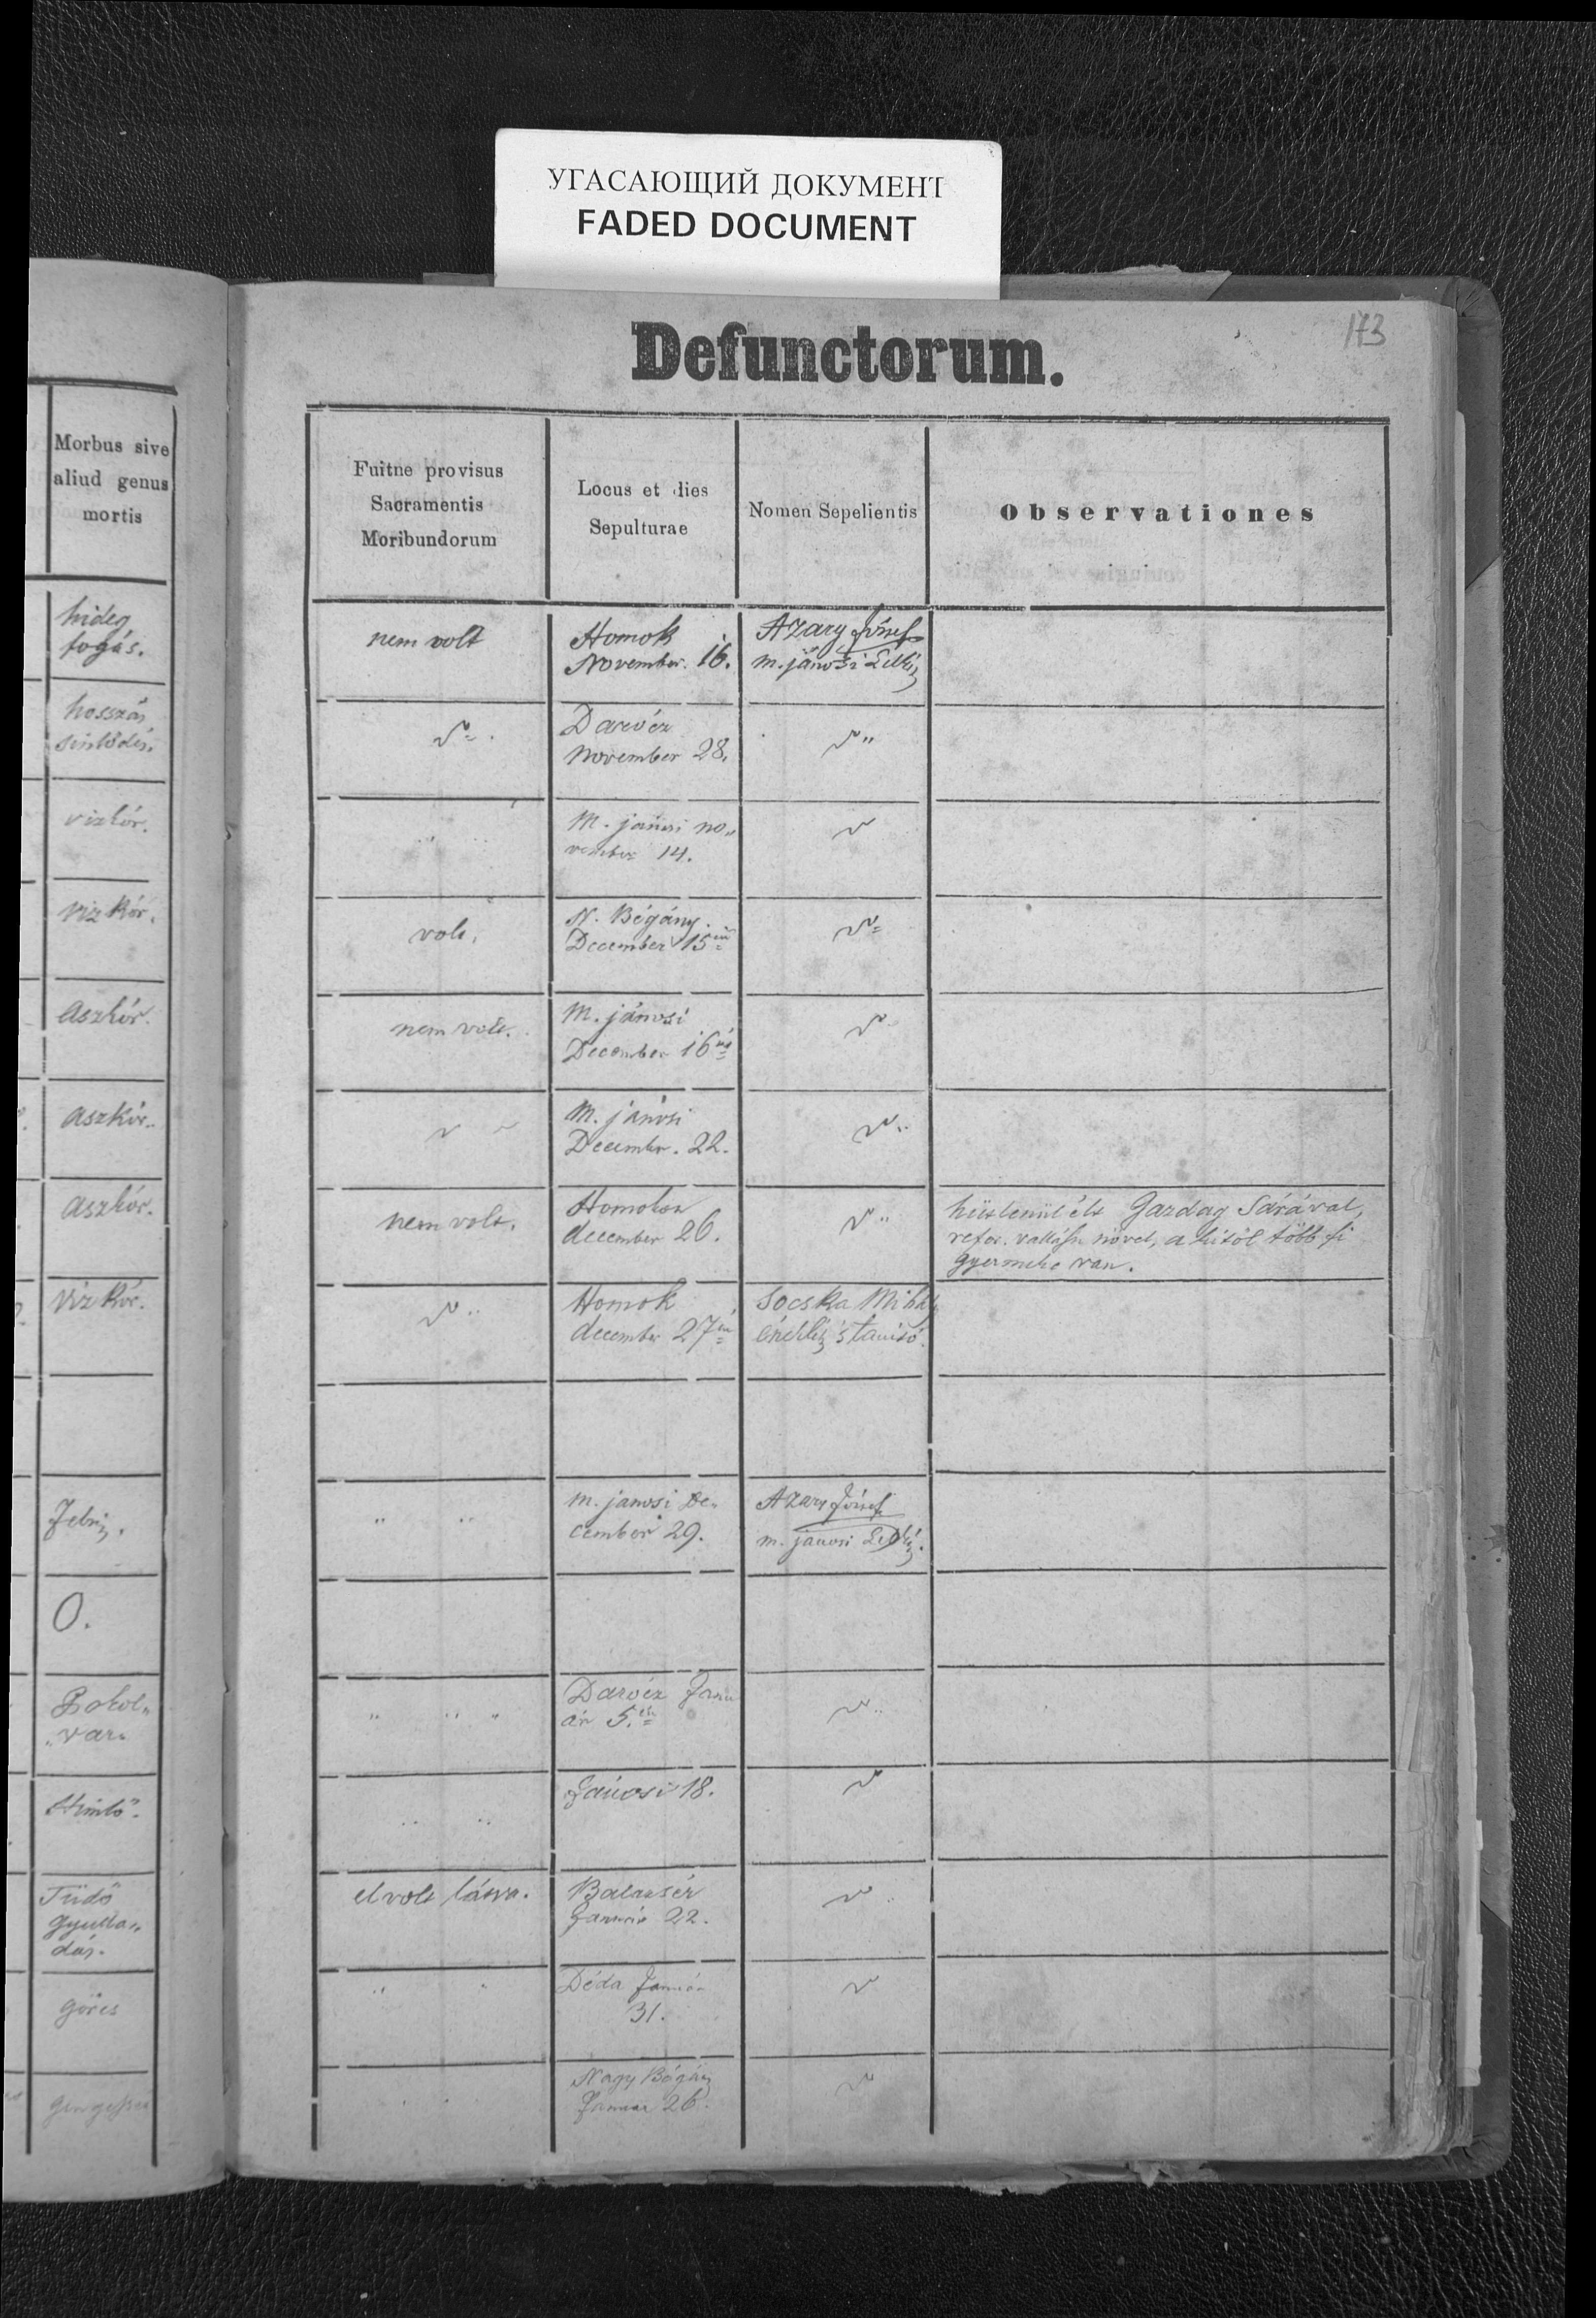 УГАСАЮЩИЙ ДОКУМЕНТ
FADED DOCUMENT
173
Defunctorum.
Morbus sive
aliud genus
mortis
Fuitne provisus
Sacramentis
Moribundorum
Locus et dies
Sepulturae
Nomen Sepelientis
Observationes
hideg
fogás.
nem volt
Homok
November. 16.
Azary József
m. jánosi Lelkész
hosszas
Darócz
November 28.
vizkór.
M. jánosi no„
vember 14.
viz kór.
volt.
N. Bégány.
December 15én
aszkór.
nem volt.
M. jánosi
December 16án
aszkór.
M. jánosi
December. 22.
aszkór.
nem volt.
Homokon
december 26.
hütlenül élt Gazdag Sárával,
refor. vallásu nővel, a kitől több fi
gyermeke van.
viz kór.
Homok
december 27én
Socska Mihály
éneklész tanitó.
m. janosi De„
cember 29.
Azary József
m. janosi Lelkész.
0.
Pokol„
„var.
Darócz Janu
ár 5.én
Himlő.
Jánosi 18.
Tüdő
gyulla„
dás.
el volt látva.
Balazsér
Január 22.
görcs
Déda Január
31.
Nagy Bégány
Januar 26.